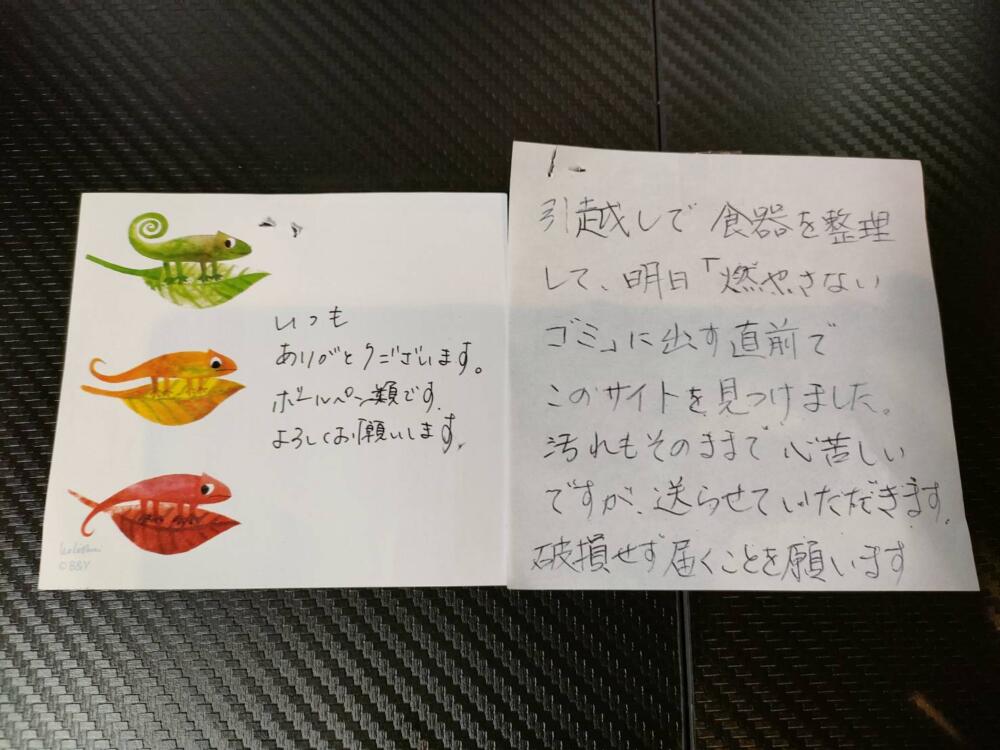 いつも
ありがとうございます。
ボールペン類です.
よろしくお願いします.
©B&Y
引越しで食器を整理
して、明日「燃やさない
ゴミ」に出す直前で
このサイトを見つけました。
汚れもそのままで心苦しい
ですが、送らせていただきます。
破損せず届くことを願います